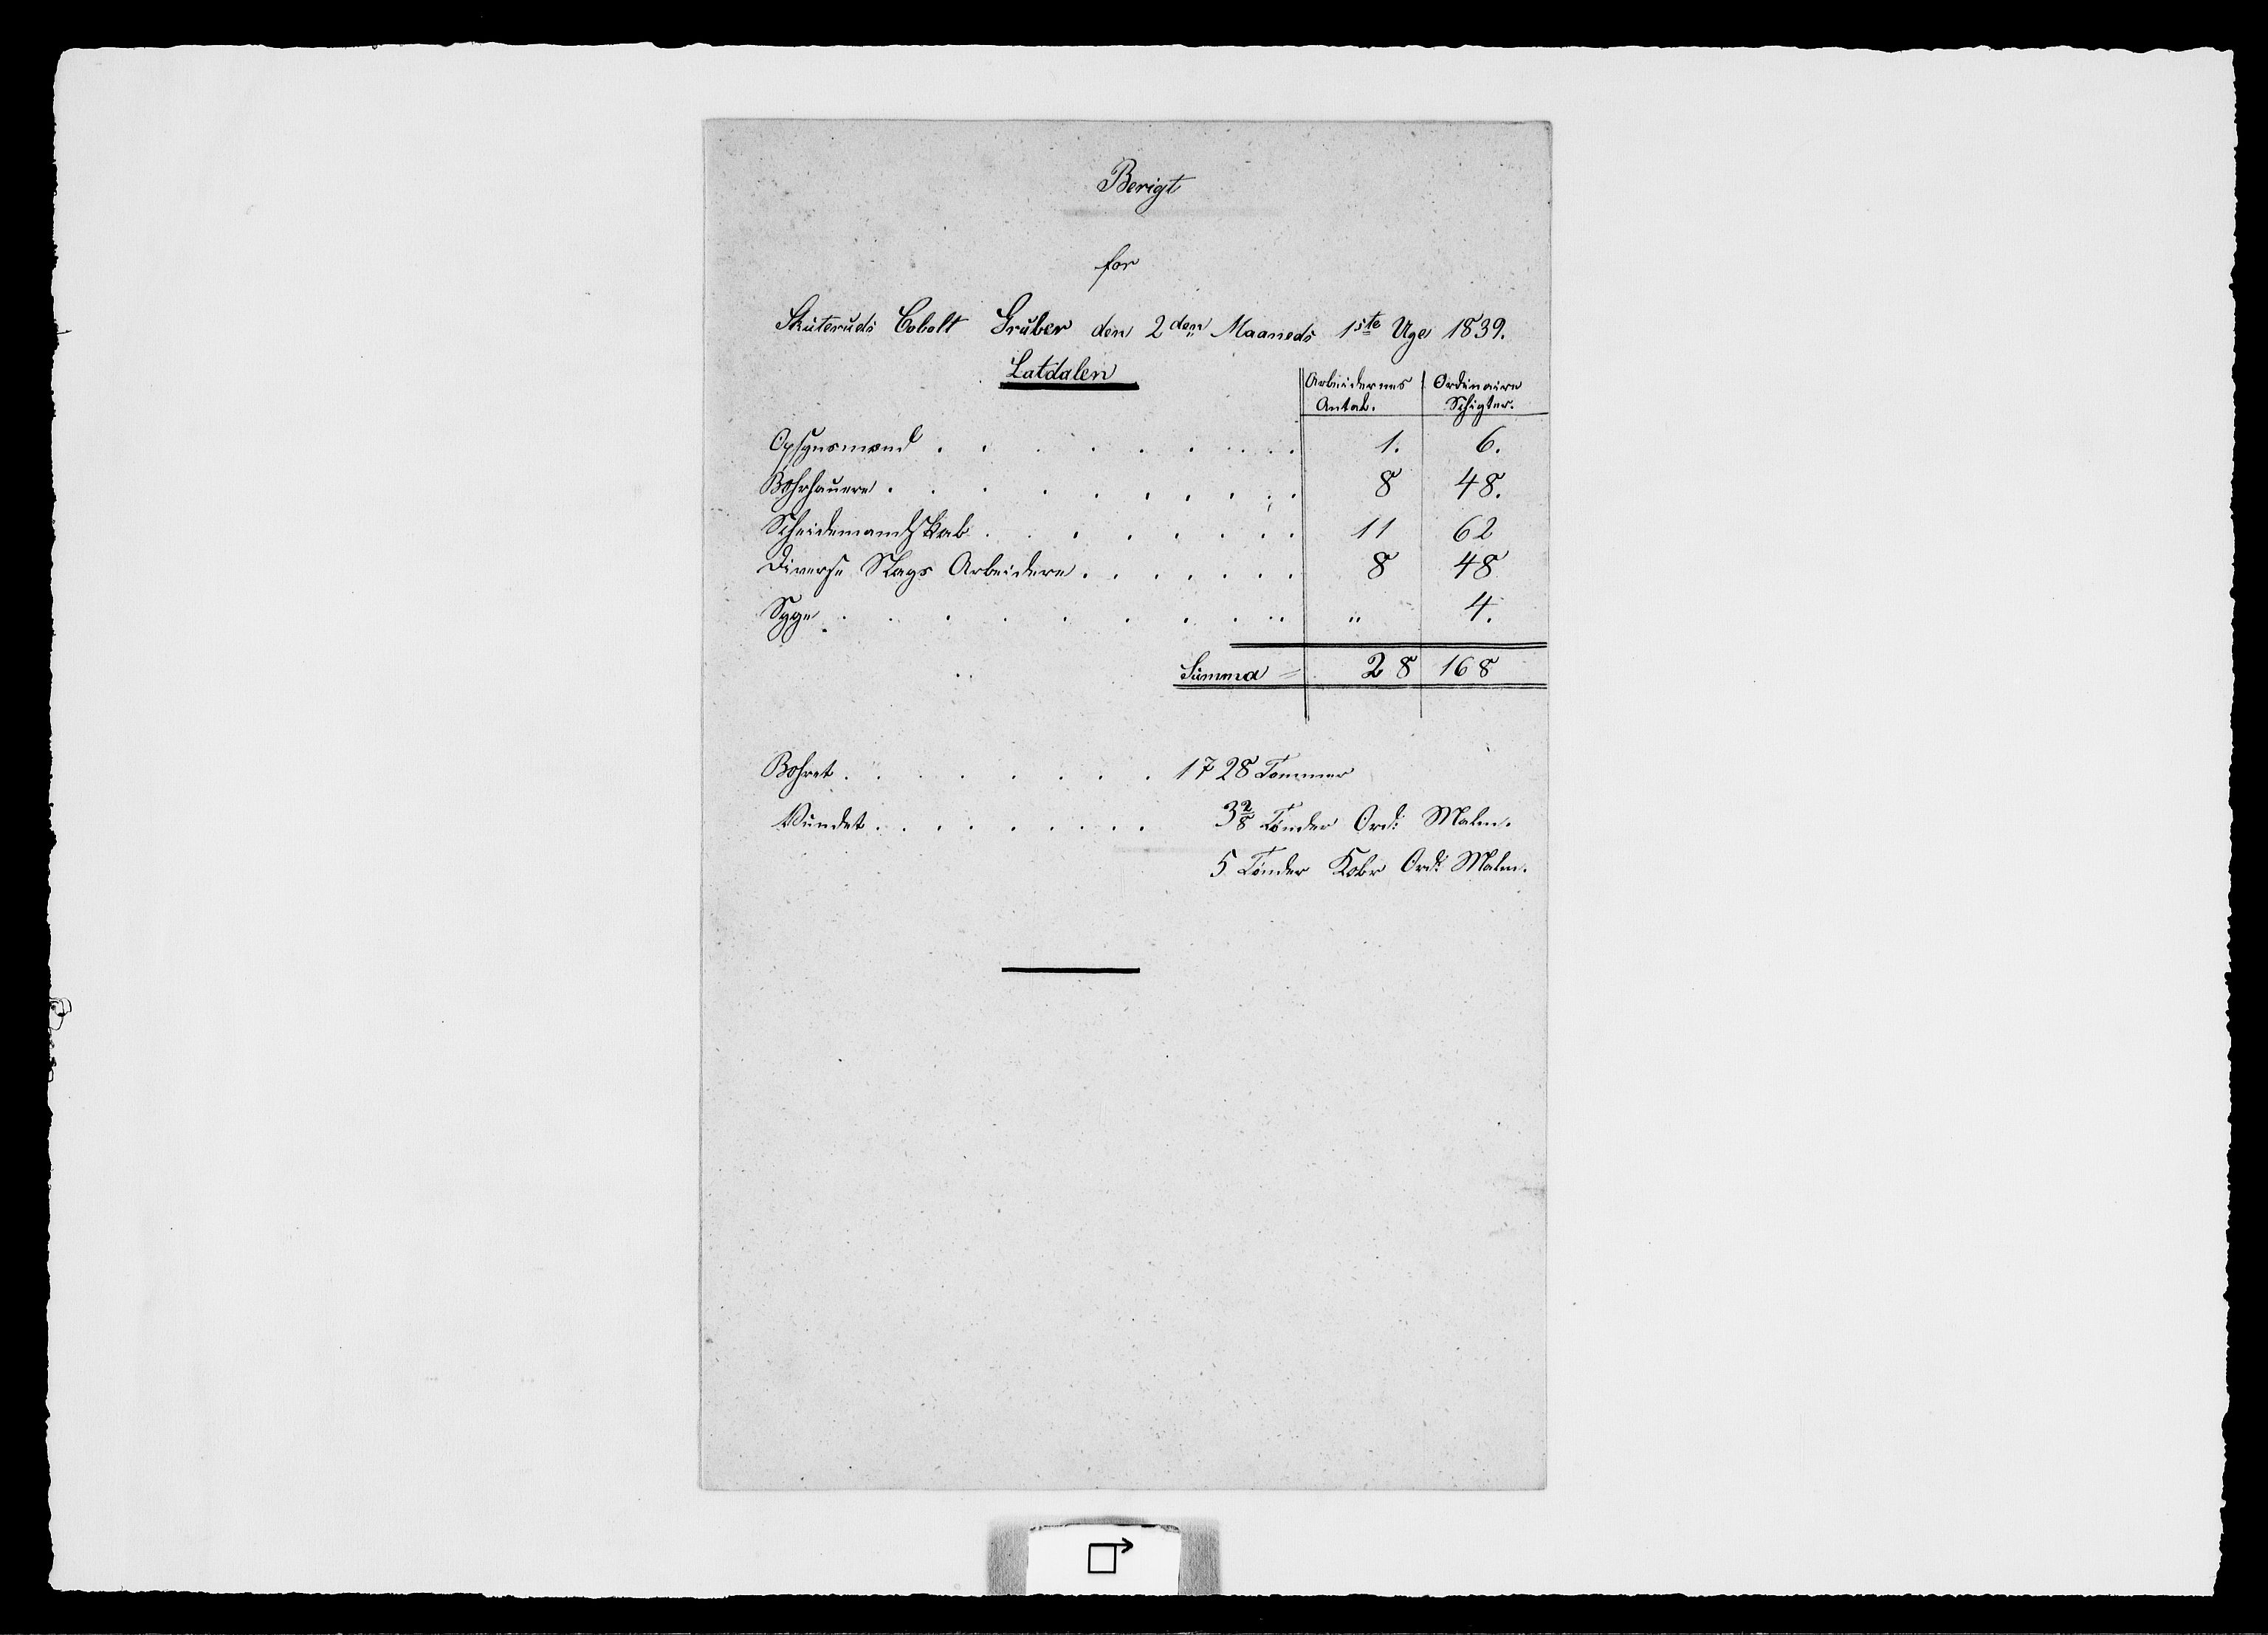 Berigt
for
Skuteruds Cobolt Gruber den 2den Maaneds 1ste Uge 1839.
Latdalen
Arbeidernes Antal. Ordinaire Schigter.
Opsynsmænd . . . . . . . . 1. 6.
Bohrhauere . . . . . . . . 8 48.
Scheidemandskab . . . . . . . 11 62
Diverse Slags Arbeidere . . . . . . . 8 48
Syge . . . . . . . . . . " 4.
Summa = 28 168
Bohret . . . . . . . . 1728 Tommer
Vundet . . . . . . . . 3 2/8 Tønder Ord: Malm.
5 Tønder Ord: Malm.